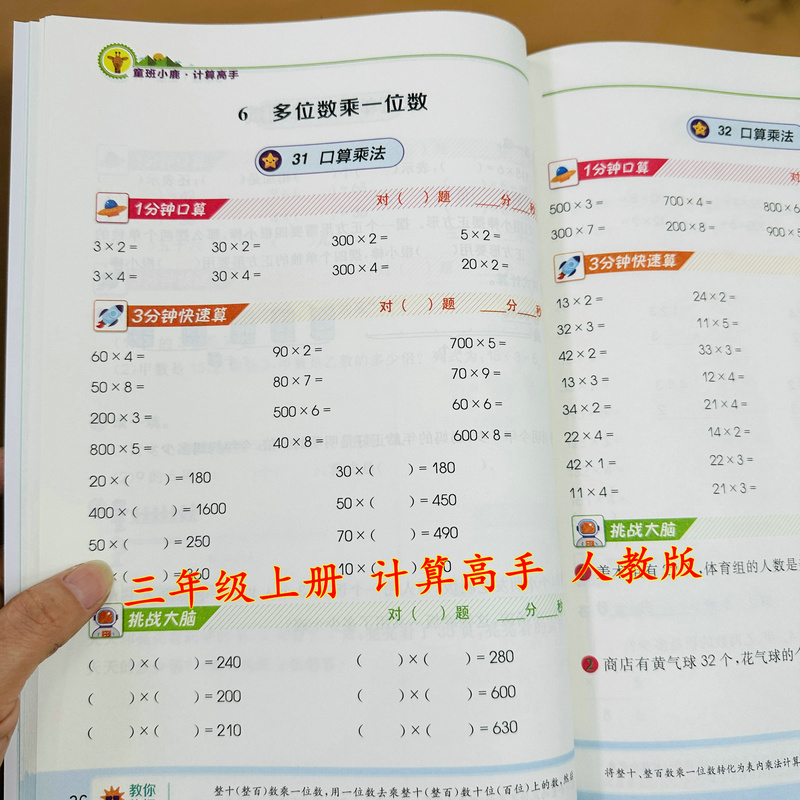 童班小鹿·计算高手
6 多位数乘一位数
31 口算乘法
1分钟口算 对( )题 ___分___秒
3×2= 30×2= 300×2= 5×2=
3×4= 30×4= 300×4= 20×2=
3分钟快速算 对( )题 ___分___秒
60×4= 90×2= 700×5=
50×8= 80×7= 70×9=
200×3= 500×6= 60×6=
800×5= 40×8= 600×8=
20×( )=180 30×( )=180
400×( )=1600 50×( )=450
50×( )=250 70×( )=490
三年级上册 计算高手 人教版
挑战大脑 对( )题 ___分___秒
( )×( )=240 ( )×( )=280
( )×( )=200 ( )×( )=600
( )×( )=210 ( )×( )=630
教你
整十(整百)数乘一位数,用一位数去乘整十(整百)数十位(百位)上的数,然
32 口算乘法
1分钟口算 对
500×3= 700×4= 800×6
300×7= 200×8= 900×5
3分钟快速算
13×2= 24×2=
32×3= 11×5=
42×2= 33×3=
13×3= 12×4=
34×2= 21×4=
22×4= 14×2=
42×1= 22×3=
11×4= 21×3=
挑战大脑
,体育组的人数是
2 商店有黄气球32个,花气球的
将整十、整百数乘一位数转化为表内乘法计算